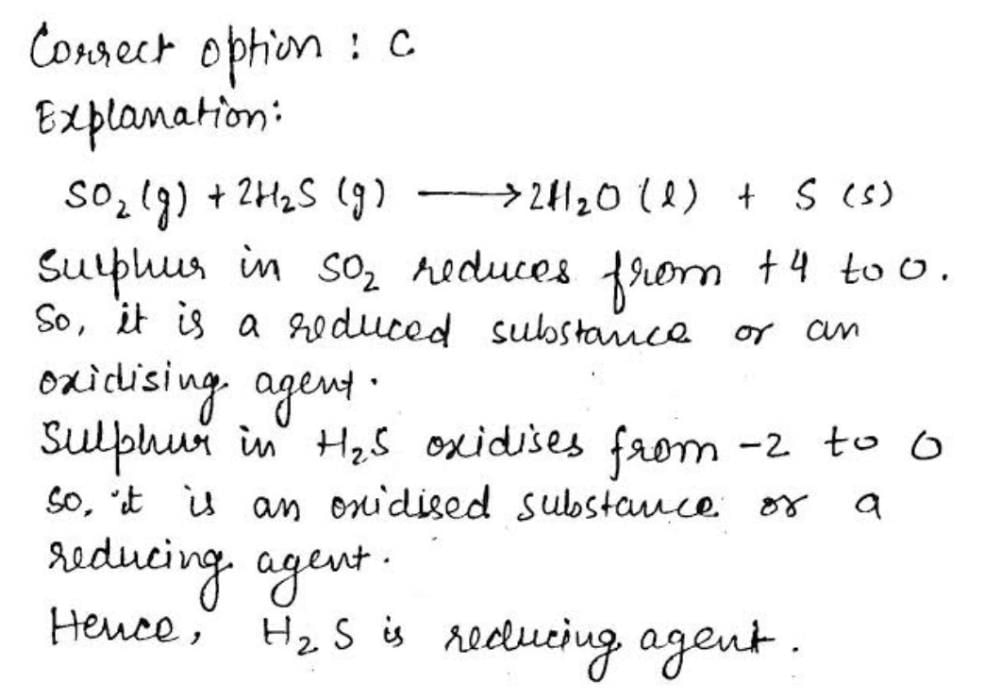 Correct option : C
Explanation:
SO₂ (g) + 2H₂S (g) ⟶ 2H₂O (l) + S (s)
Sulphur in SO₂ reduces from +4 to 0.
So, it is a reduced substance or an
oxidising agent.
Sulphur in H₂S oxidises from -2 to 0
so, it is an oxidised substance or a
reducing agent.
Hence, H₂S is reducing agent.